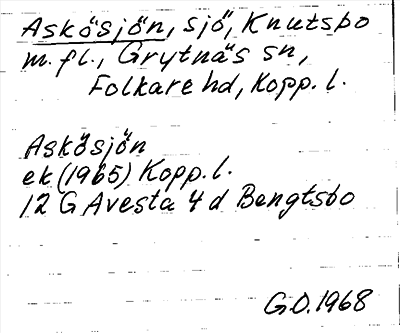 Askösjön, sjö, Knutsbo
m.fl., Grytnäs sn,
Folkare hd, Kopp. l.
Askösjön
ek (1965) Kopp. l.
12 G Avesta 4 d Bengtsbo
G.O. 1968